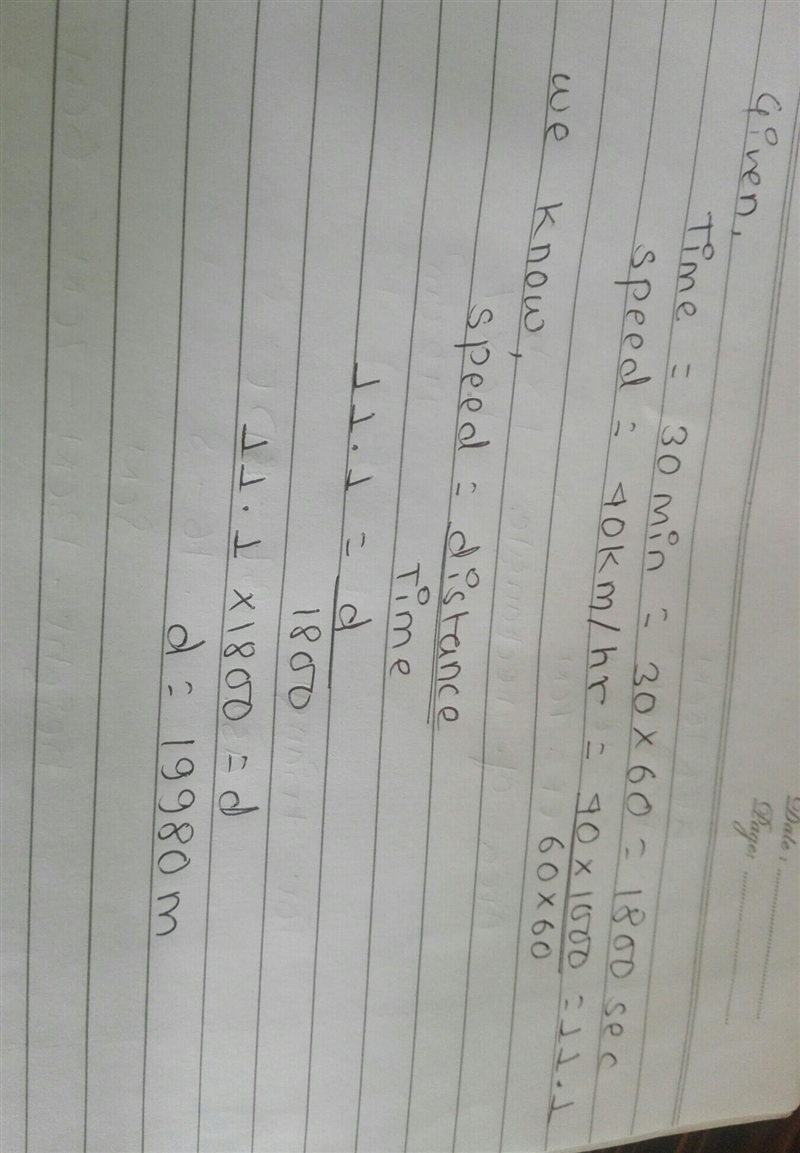 Date: ..................
Page: ..................
Given,
Time = 30 min = 30 x 60 = 1800 sec
speed = 40km/hr = 40 x 1000 = 11.1
60 x 60
we know,
speed = distance
Time
11.1 = d
1800
11.1 x 1800 = d
d = 19980 m